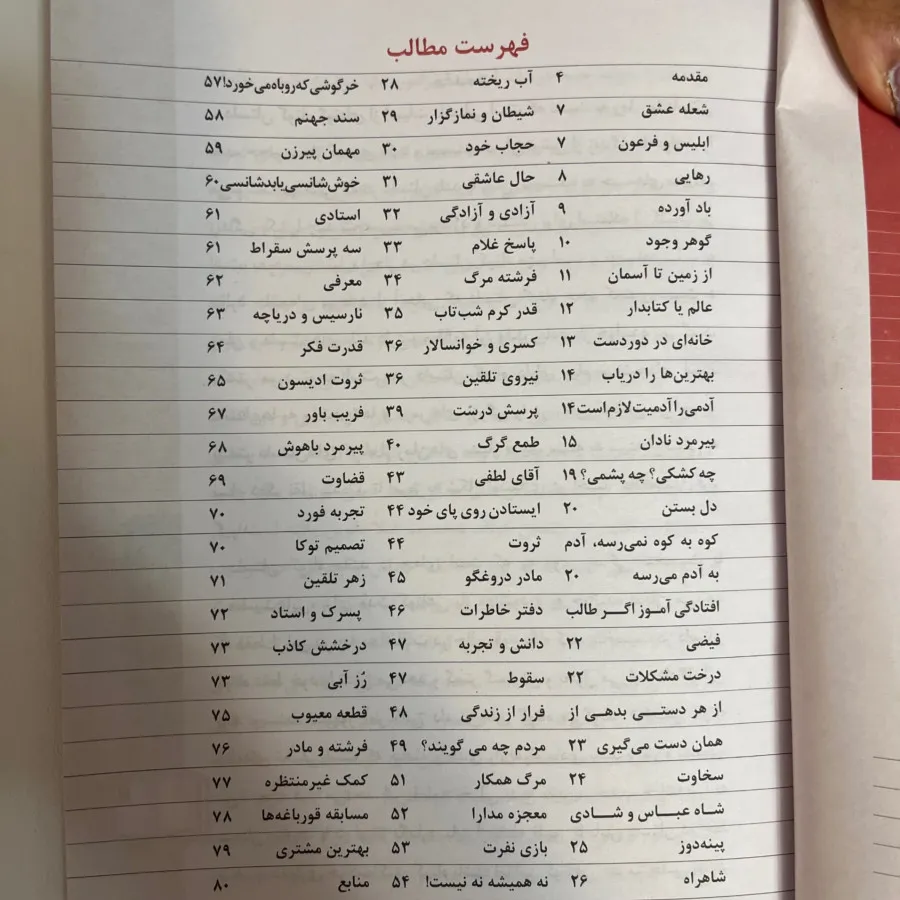 فهرست مطالب
مقدمه ۴
شعله عشق ۷
ابلیس و فرعون ۷
رهایی ۸
باد آورده ۹
گوهر وجود ۱۰
از زمین تا آسمان ۱۱
عالم یا کتابدار ۱۲
خانه‌ای در دوردست ۱۳
بهترین‌ها را دریاب ۱۴
آدمی را آدمیت لازم است ۱۴
پیرمرد نادان ۱۵
چه کشکی؟ چه پشمی؟ ۱۹
دل بستن ۲۰
کوه به کوه نمی‌رسه، آدم
به آدم می‌رسه ۲۰
افتادگی آموز اگر طالب
فیضی ۲۲
درخت مشکلات ۲۲
از هر دستی بدهی از
همان دست می‌گیری ۲۳
سخاوت ۲۴
شاه عباس و شادی
پینه‌دوز ۲۵
شاهراه ۲۶
آب ریخته ۲۸
شیطان و نمازگزار ۲۹
حجاب خود ۳۰
حال عاشقی ۳۱
آزادی و آزادگی ۳۲
پاسخ غلام ۳۳
فرشته مرگ ۳۴
قدر کرم شب‌تاب ۳۵
کسری و خوانسالار ۳۶
نیروی تلقین ۳۶
پرسش درست ۳۹
طمع گرگ ۴۰
آقای لطفی ۴۳
ایستادن روی پای خود ۴۴
ثروت ۴۴
مادر دروغگو ۴۵
دفتر خاطرات ۴۶
دانش و تجربه ۴۷
سقوط ۴۷
فرار از زندگی ۴۸
مردم چه می گویند؟ ۴۹
مرگ همکار ۵۱
معجزه مدارا ۵۲
بازی نفرت ۵۳
نه همیشه نه نیست! ۵۴
خرگوشی که روباه می‌خورد! ۵۷
سند جهنم ۵۸
مهمان پیرزن ۵۹
خوش‌شانسی یا بدشانسی ۶۰
استادی ۶۱
سه پرسش سقراط ۶۱
معرفی ۶۲
نارسیس و دریاچه ۶۳
قدرت فکر ۶۴
ثروت ادیسون ۶۵
فریب باور ۶۷
پیرمرد باهوش ۶۸
قضاوت ۶۹
تجربه فورد ۷۰
تصمیم توکا ۷۰
زهر تلقین ۷۱
پسرک و استاد ۷۲
درخشش کاذب ۷۳
رُز آبی ۷۳
قطعه معیوب ۷۵
فرشته و مادر ۷۶
کمک غیرمنتظره ۷۷
مسابقه قورباغه‌ها ۷۸
بهترین مشتری ۷۹
منابع ۸۰